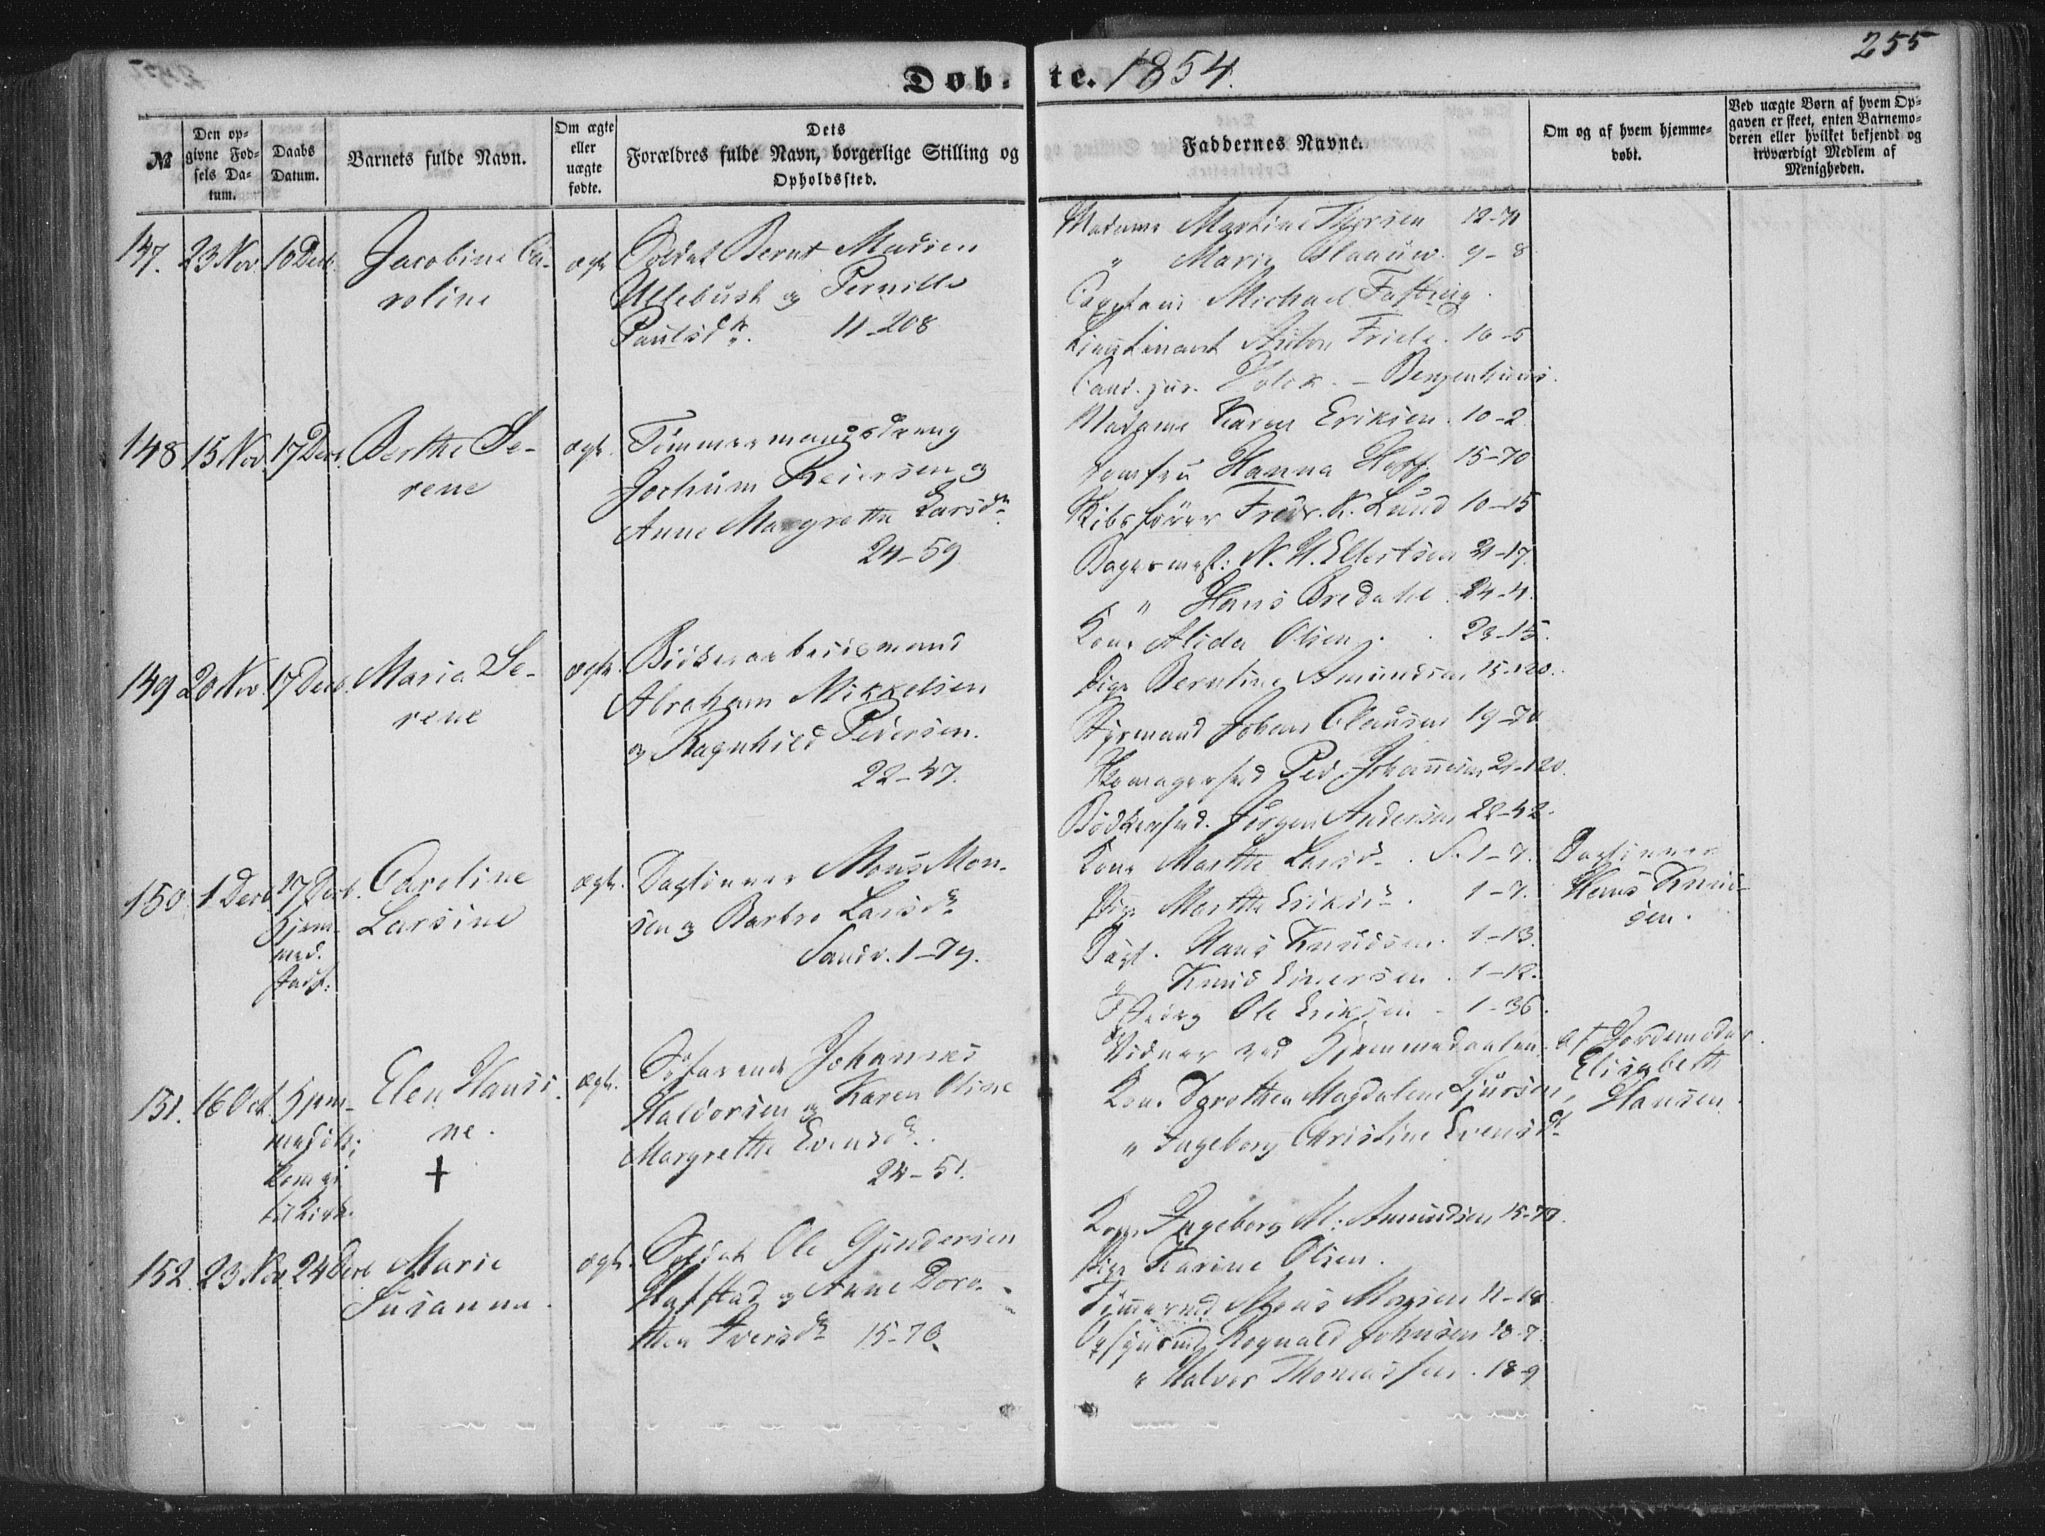 255
Døbte. 1854.
№
Den opgivne Fødsels Datum.
Daabs Datum.
Barnets fulde Navn.
Om ægte eller uægte fødte.
Dets Forældres fulde Navn, borgerlige Stilling og Opholdssted.
Faddernes Navne.
Om og af hvem hjemmedøbt.
Ved uægte Børn af hvem Opgaven er skeet, enten Barnemoderen eller hvilket bekjendt og troværdigt Medlem af Menigheden.
147. 23 Nov 10 Decb. Jacobine Caroline
ægte
Soldat Bernt Madsen
Ullebust og Pernille
Paulsdr. 11-208
Madame Martine Thyrsen 12-71
" Marie Blaauw. 9-8
Captain Michael Fasting.
Lieutenant Anton Friele. 10-5
Cand. jur. Holck. - Bergenhuus.
148 15 Nov. 17 Decb. Berthe Serene
ægte.
Tømmermandsdreng
Jochum Reiersen og
Anne Margrethe Larsdr.
24-59
Madame Karen Eriksen. 10-2
Jomfru Hanna Hoff. 15-70
Skibsfører Fredr. K. Lund 10-15
Bagermest: N. H. Ellertsen 21-17.
" Hans Bredahl. 24-4.
149 20 Nov. 17 Decb. Maria Serene
ægte.
Abraham Mikkelsen
og Ragnhild Pedersen.
22-47.
Kone Alida Olsen . . 23-15.
Pige Berntine Amundsen 15-120.
Styrmand Johan Clausen 19-70
Skomagersvd Ped. Johannesen 21-120.
Bødkersvd. Jørgen Andersen 22-42.
150 1 Decb. 27 Decb. Caroline Larsine
Hjemmed. stadf.
ægte.
Dagleiner Mons Monsen og Barbro Larsdr.
Sandv. 1-79.
Kone Marthe Larsdr. S. 1-7.
Pige Marthe Eriksdr. 1-7.
Dagl. Hans Knudsen. 1-13.
" Knud Einersen. 1-12.
Dreng Ole Eriksen - 1-36.
Dagleiner
Hans Knudsen.
151. 16 Oct. Hjemmedøbt;
kom ei
til Kirk.
Elen Hansine.
+
ægte.
Søfarende Johannes
Haldorsen og Karen Oline
Margrethe Evensdr.
24-51.
Vidner ved Hjemmedaaben.
Kone Dorothea Magdalene Sjursen,
" Ingeborg Christine Evensdr
af Jordemoder
Elisabeth
Hansen.
152. 23 Nov. 24 Decb Marie
Susanna.
ægte.
Soldat Ole Gundersen
Hafstad og Anne Dorothea Iversdr 15-70.
Kone Ingeborg M: Amundsen 15-70.
Pige Karine Olsen.
Tømmersvd Mons Monsen 11-18
Ragnvald Johnsen 18-7.
" Halvor Thomassen. 18-9